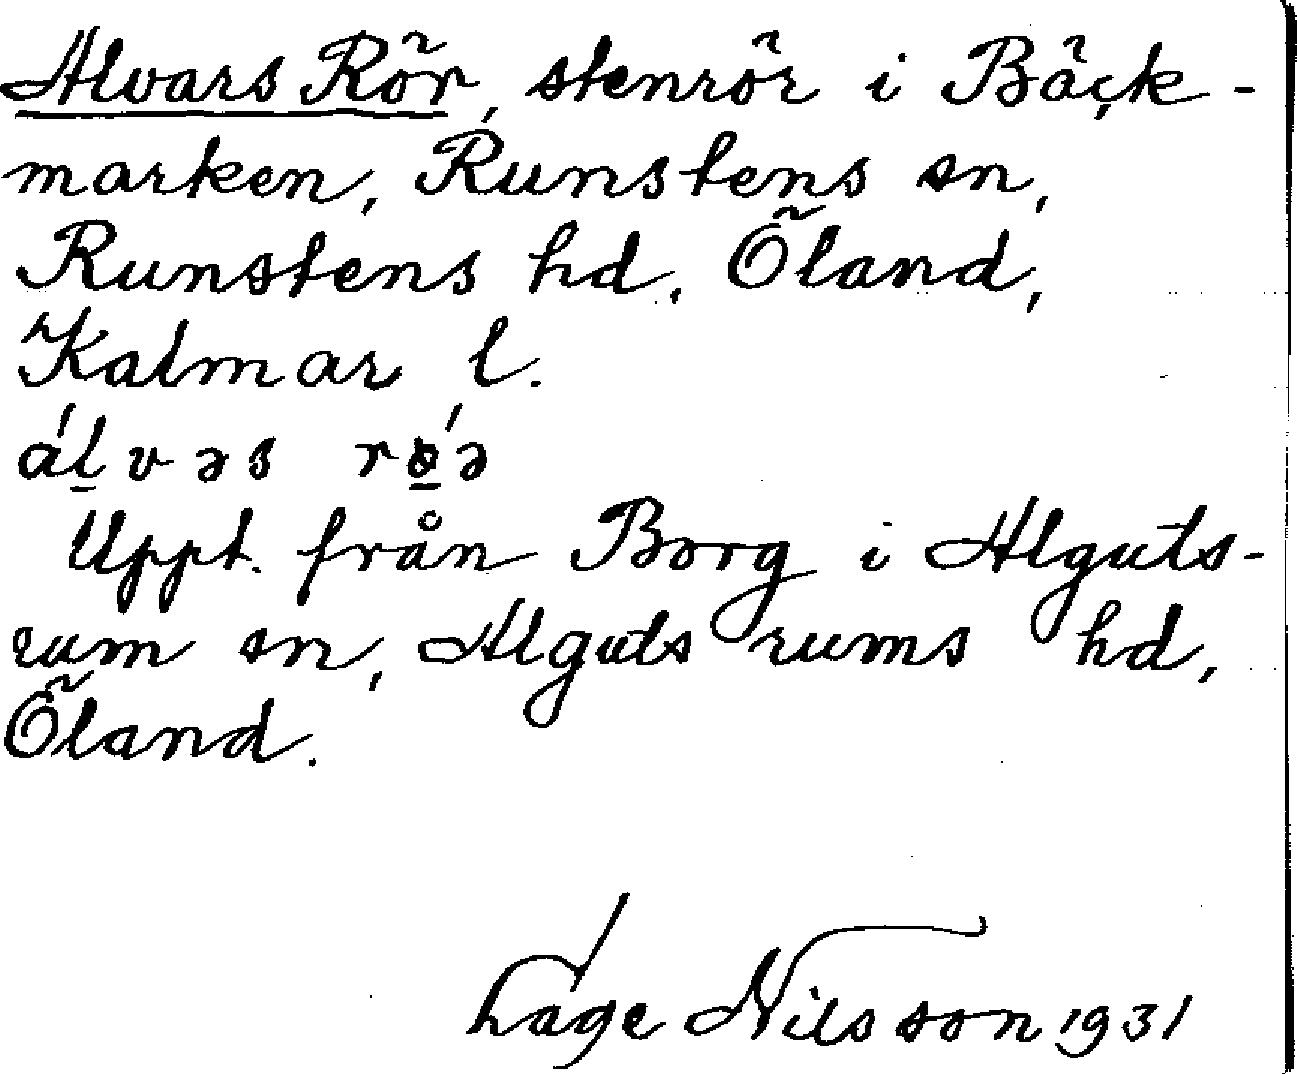 Alvars Rör, stenrör i Bäck-
marken, Runstens sn,
Runstens hd. Öland,
Kalmar l.
ál̠vəs rɵ̠́ə
Uppt. från Borg i Alguts-
rum sn, Algutsrums hd,
Öland.
Lage Nilsson 1931